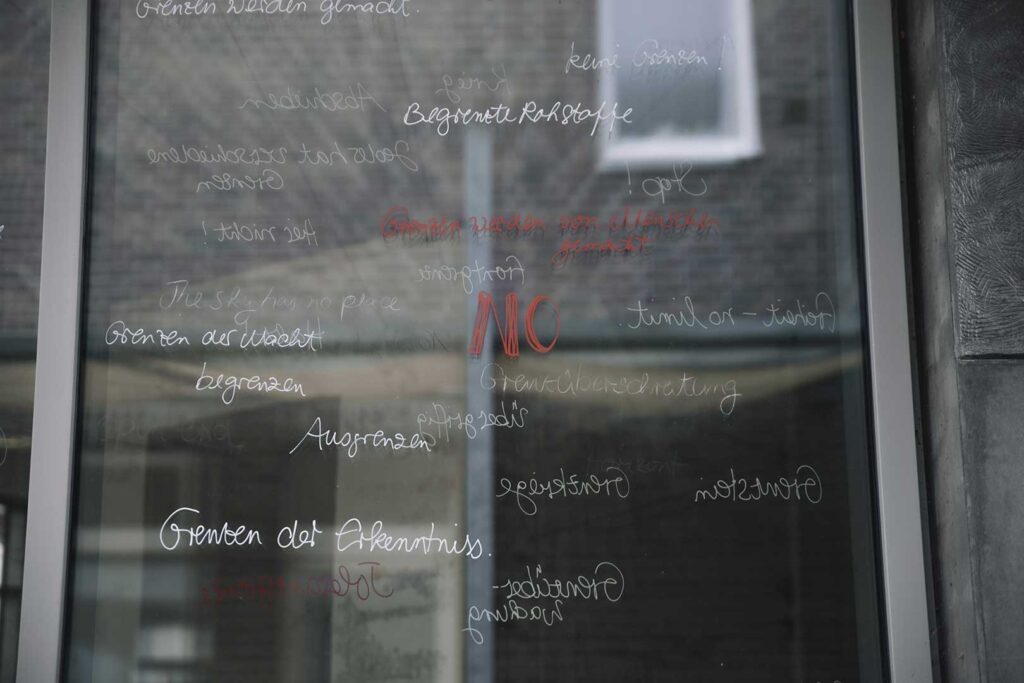 Grenzen werden gemacht.
keine Grenzen!
Krieg
Abschieben
Begrenzte Rohstoffe
Jede hat verschiedene
Grenzen
Stop!
Hier nicht!
Grenzen werden von Menschen
gemacht
The sky has no place
NO
Freiheit - no limit.
Grenzen der Macht
begrenzen
Grenzüberschreitung
übergriffig
Ausgrenzen
Grenzkriege
Grenzstein
Grenzen der Erkenntniss.
Grenzüber-
wachung